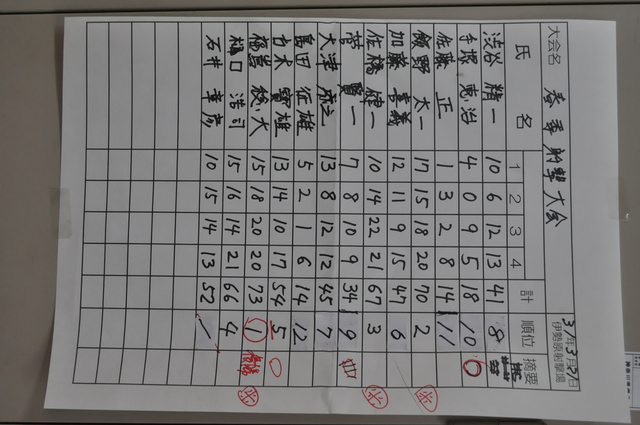 大会名 春季射撃大会 3年3月21日
伊勢原射撃場
氏名 1 2 3 4 計 順位 摘要
渋谷 精一 10 6 12 13 41 8
手塚 恵治 4 0 9 5 18 10
佐藤 正 1 3 2 8 14 11
飯野 太一 17 15 18 20 70 2
加藤 喜義 12 11 9 15 47 6
佐橋 雄一 10 14 22 21 67 3
菅 賢一 7 8 10 9 34 9
大津 13 8 12 12 45 7
島田 征雄 5 2 1 6 14 12
力木 寳雄 13 14 10 17 54 5
福 大 15 18 20 20 73 1 優勝
樋口 浩司 15 16 14 21 66 4
石井 幸彦 10 15 14 13 52